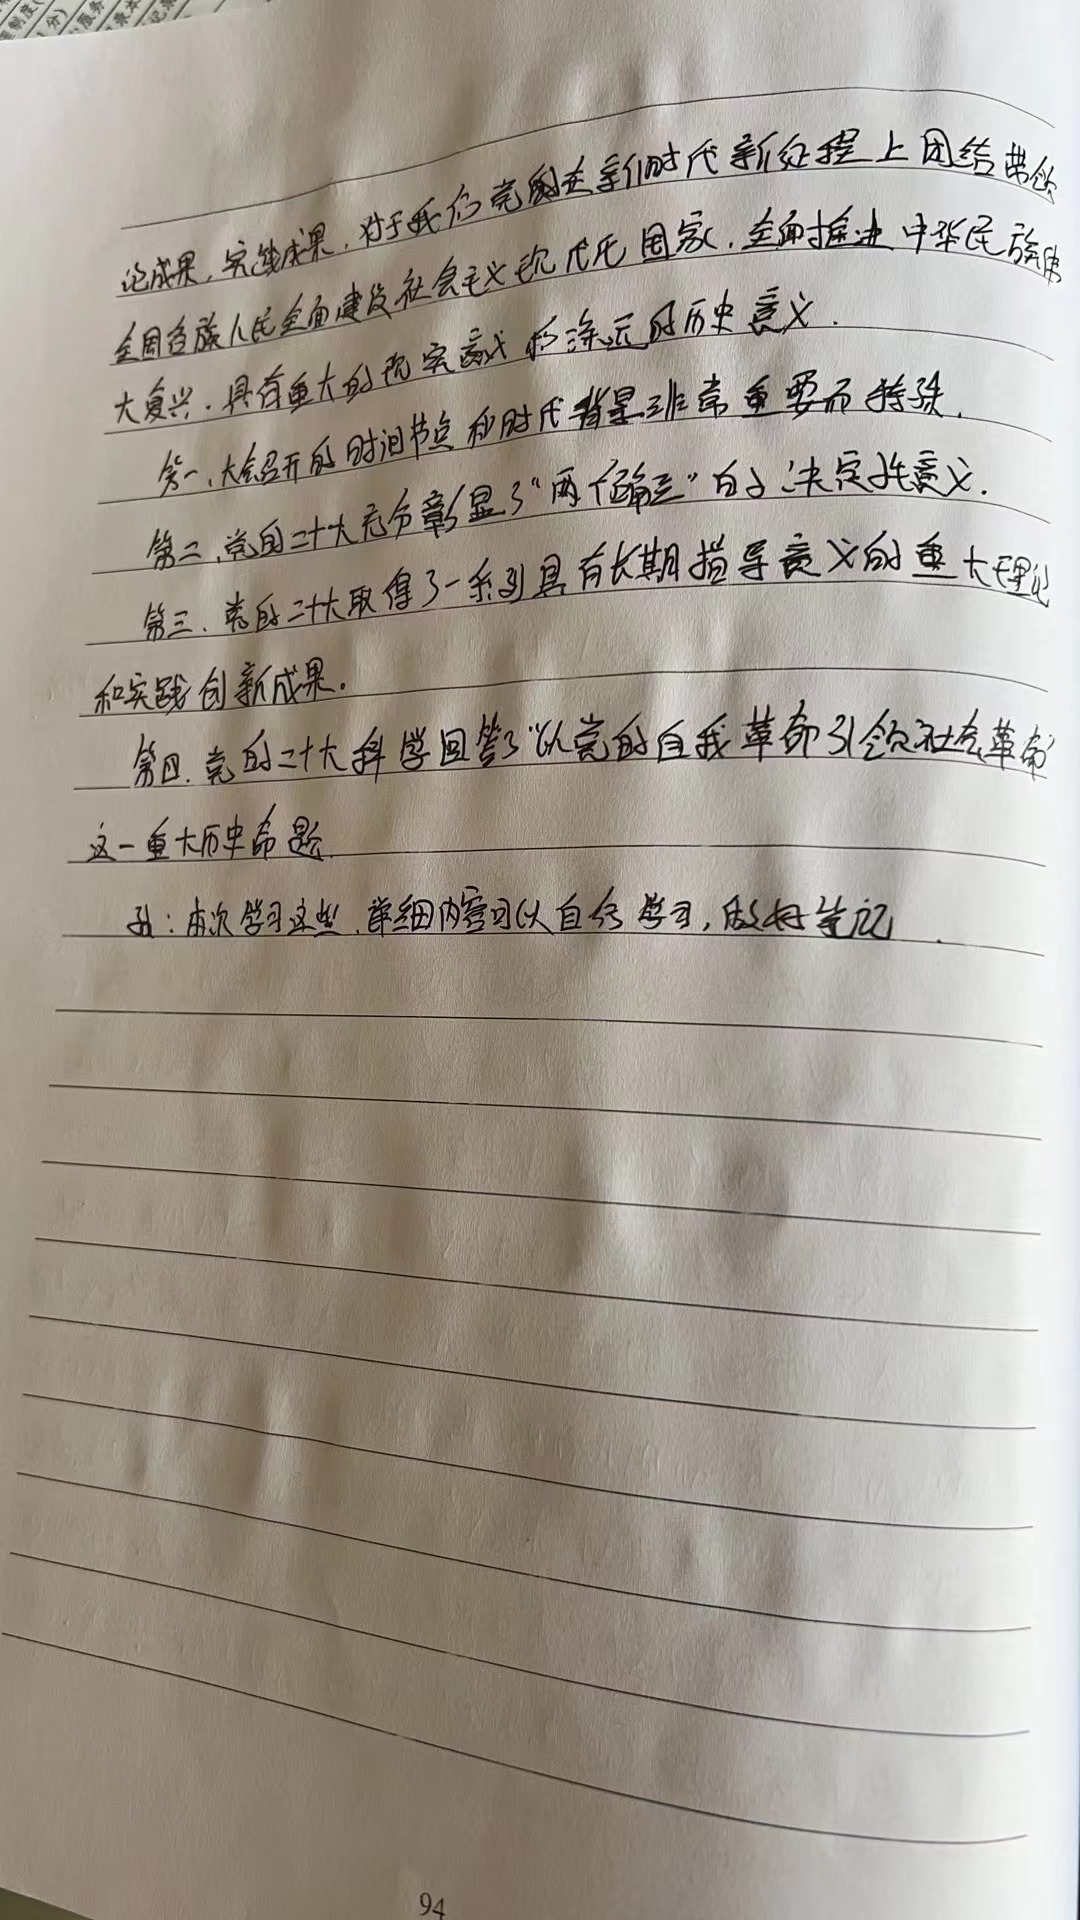 论成果、实践成果,对于我们党团在新时代新征程上团结带领
全国各族人民全面建设社会主义现代化国家,全面推进中华民族伟
大复兴,具有重大的现实意义和深远的历史意义.
第一、大会召开的时间节点和时代背景非常重要而特殊.
第二、党的二十大充分彰显了“两个确立”的决定性意义.
第三、党的二十大取得了一系列具有长期指导意义的重大理论
和实践创新成果.
第四、党的二十大科学回答了“以党的自我革命引领社会革命”
这一重大历史命题.
:本次学习这些,详细内容可以自行学习,做好笔记.
94